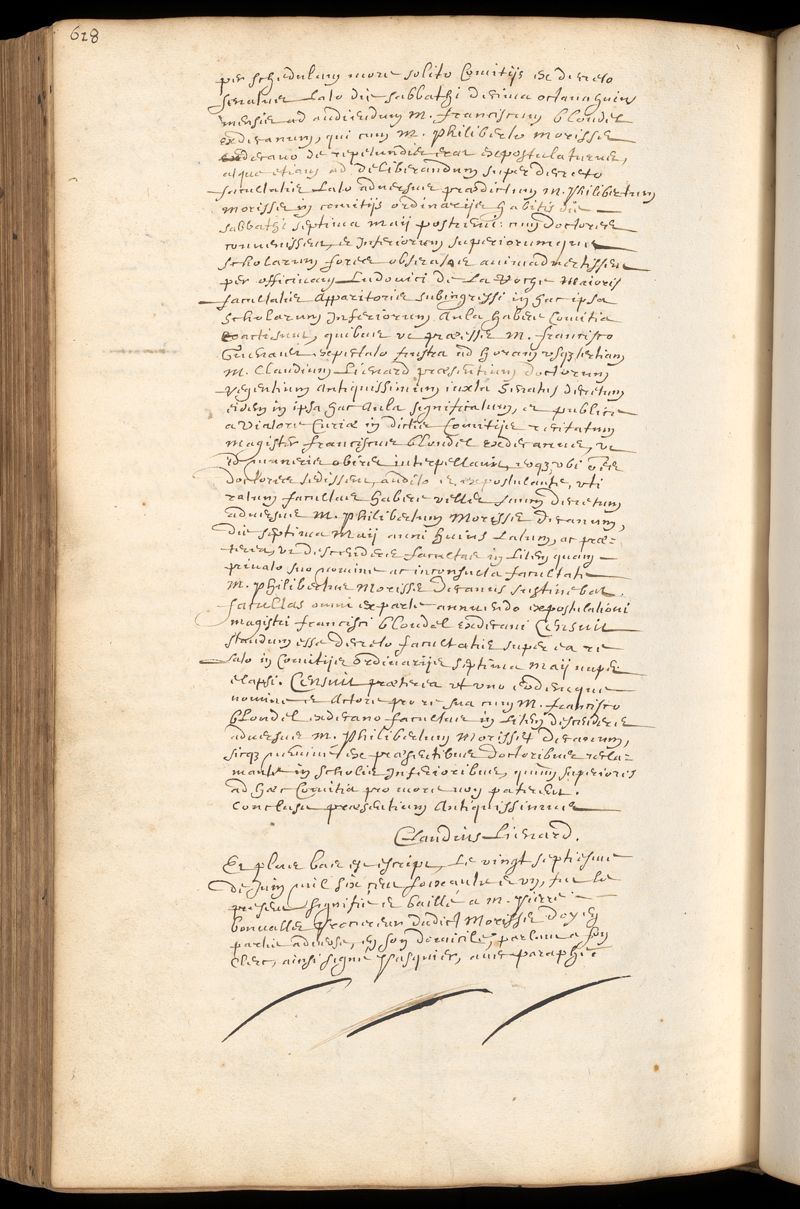 618
per schedulam more solito Comitijs ex decreto
senatus Lato die sabbathi decima octava huius
mensis ad audiendum M. franciscum blondel
exdecanum, qui cum M. Philiberto Morisset
exdecano de repetundis erat expostulaturus,
atque etiam ad deliberandum super decreto
facultatis Lato adversus prædictum M. Philibertum
Morisset in comitijs ordinarijs habitis die
sabbathi septima Maij postremi: cum doctores
convenissent, et Inferiorum superiorumque
scholarum fores obseratas animadvertissent
per officinam Ludovici de La Roche Maioris
facultatis Apparitoris subingressi in hac ipsa
scholarum Inferiorum Aula habere Comitia
coacti sunt, quibus ut præesset M. francisco
Guenault expectato frustra ad horam usq3 tertiam
M. Claudium Lienard præsentium doctorum
regentium Antiquissimum iuxta Senatus decretum
eidem in ipsa hac Aula significatum, et publice
a viatore Curiæ in dictis Comitijs recitatum
Magister franciscus blondel exdecanus, ut
id muneris obiret interpellavit, ubi
doctores sedissent, audito et expostulante, uti
ratum facultas habere vellet suum decretum
adversus M. Philibertum Morisset decanum,
die septima Maij anni huius Latum, ac præ-
terea, ut descenderet facultas in Litem quam
privato suo nomine ac inconsulta facultate
M. Philibertus Morisset decanus sustinebat.
facultas omni ex parte annuendo expostulationi
Magistri francisci blondel exdecani Censuit
standum esse decreto facultatis super ea re
lato in Comitijs ordinarijs septima Maij nuper
elapsi. Censuit præterea ut uno eodemque
nomine et Actore pro re sua cum M. francisco
blondel exdecano facultas in Litem descenderet
adversus M. Philibertum Morisset decanum,
sicq3 nemine ex præsentibus doctoribus recla-
mante in scholis Inferioribus, quum superiores
ad hæc Comitia pro more non paterent.
Conclusi præsentium Antiquissimus
Claudius Lienard.
Et plus bas est escript, Le vingt septiesme
de Juin mil six cens soixante et un, fut le
present signifié et baillé a M. Pierre
bonvallet Procureur dudict Morisset Doyen
partie adverse, en son domicile, parlant a son
Clerc, ainsi signé Pasquier, avec paraphe